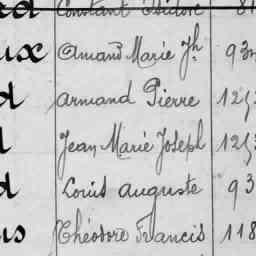 Constant Isidore 81
Amand Marie Jh 93
Armand Pierre 125
Jean Marie Joseph 125
Louis Auguste 93
Théodore Francis 118